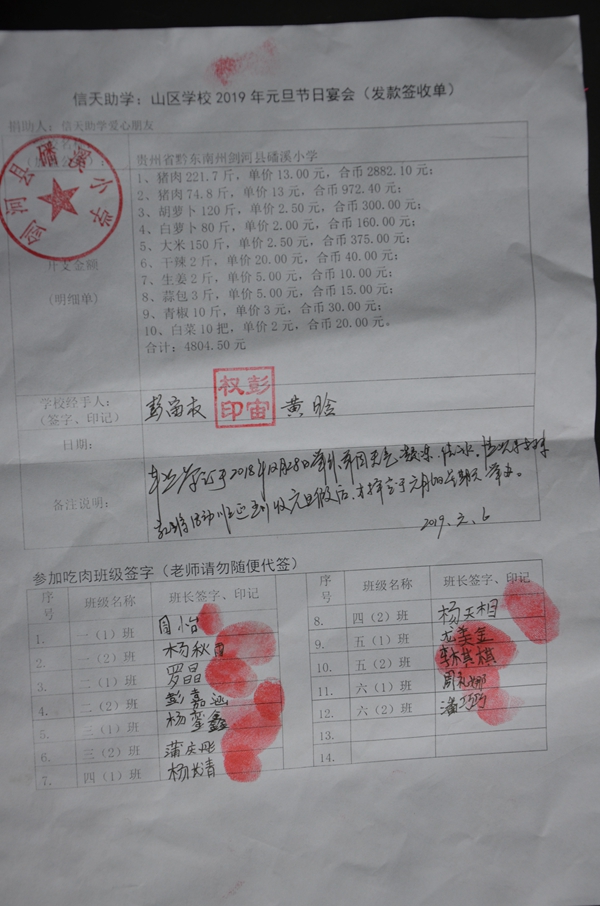 信天助学：山区学校 2019 年元旦节日宴会（发款签收单）
捐助人：信天助学爱心朋友
贵州省黔东南州剑河县磻溪小学
剑河县磻溪小学
1、猪肉 221.7 斤，单价 13.00 元，合币 2882.10 元；
2、猪肉 74.8 斤，单价 13 元，合币 972.40 元；
3、胡萝卜 120 斤，单价 2.50 元，合币 300.00 元；
4、白萝卜 80 斤，单价 2.00 元，合币 160.00 元；
5、大米 150 斤，单价 2.50 元，合币 375.00 元；
6、干辣 2 斤，单价 20.00 元，合币 40.00 元；
7、生姜 2 斤，单价 5.00 元，合币 10.00 元；
8、蒜包 3 斤，单价 5.00 元，合币 15.00 元；
9、青椒 10 斤，单价 3 元，合币 30.00 元；
10、白菜 10 把，单价 2 元，合币 20.00 元。
合计：4804.50 元
开支金额
(明细单)
学校经手人：
(签字、印记)
彭宙权 黄晗
彭宙权印
日期：
备注说明：
2018年12月28日
元旦假后
2019.2.6
参加吃肉班级签字（老师请勿随便代签）
序号 班级名称 班长签字、印记
1. 一（1）班 周怡
2. 一（2）班 杨秋
3. 二（1）班 罗晶
4. 二（2）班 彭嘉
5. 三（1）班 杨 鑫
6. 三（2）班 蒲庆彤
7. 四（1）班 杨 清
序号 班级名称 班长签字、印记
8. 四（2）班 杨天相
9. 五（1）班 尤美金
10. 五（2）班 棋
11. 六（1）班 周礼娜
12. 六（2）班 潘
13.
14.